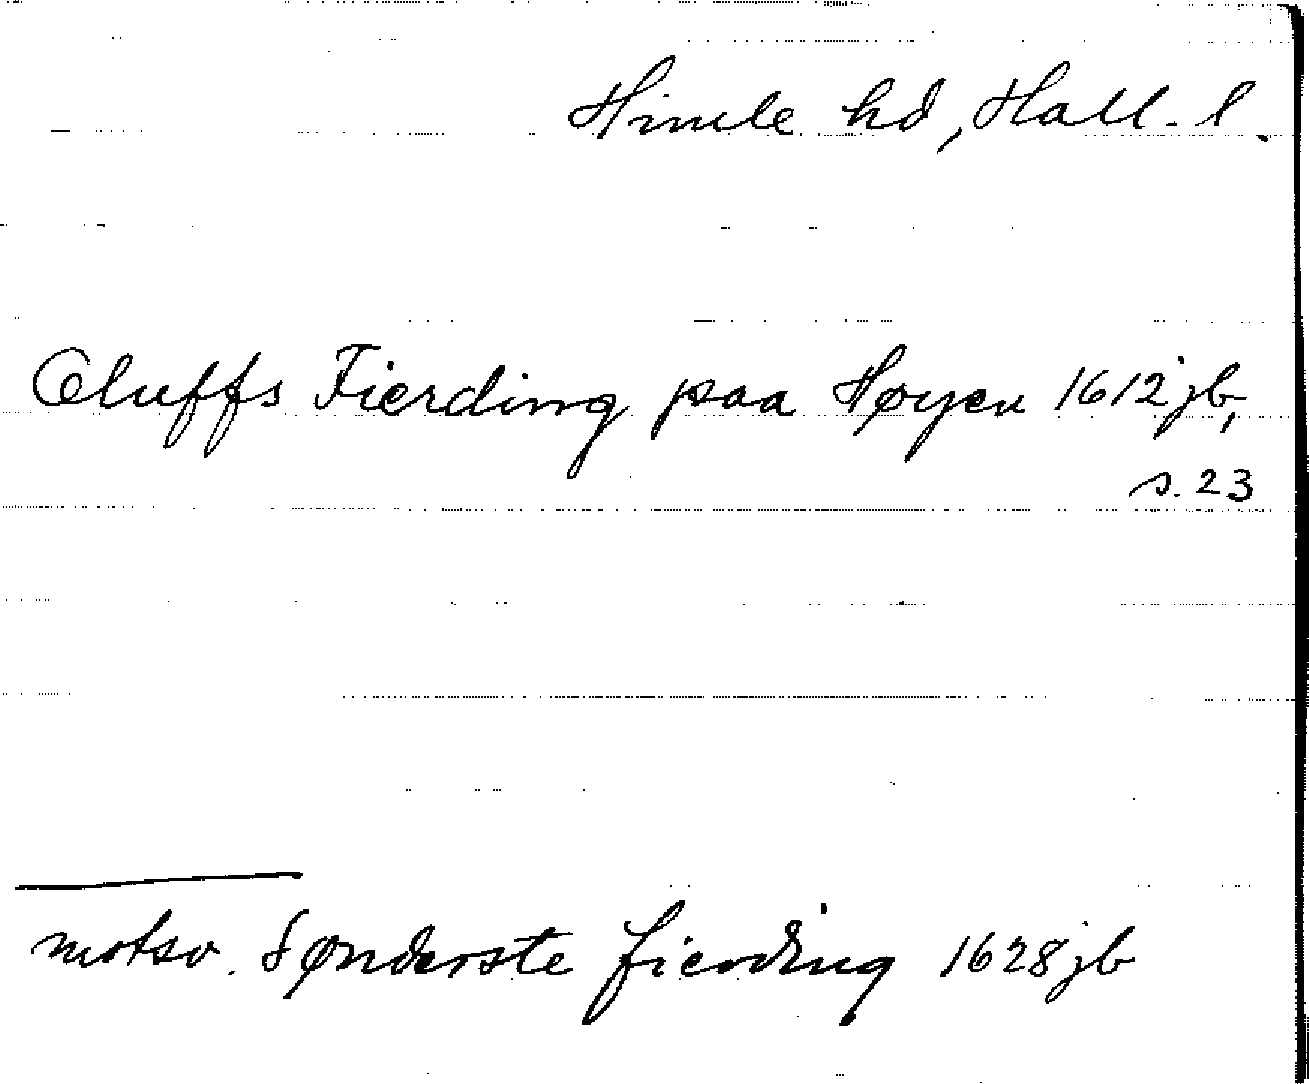 Himle hd, Hall. l.
Oluffs Fierding paa Høyen 1612 jb,
s. 23
motsv. Sønderste fierding 1628 jb